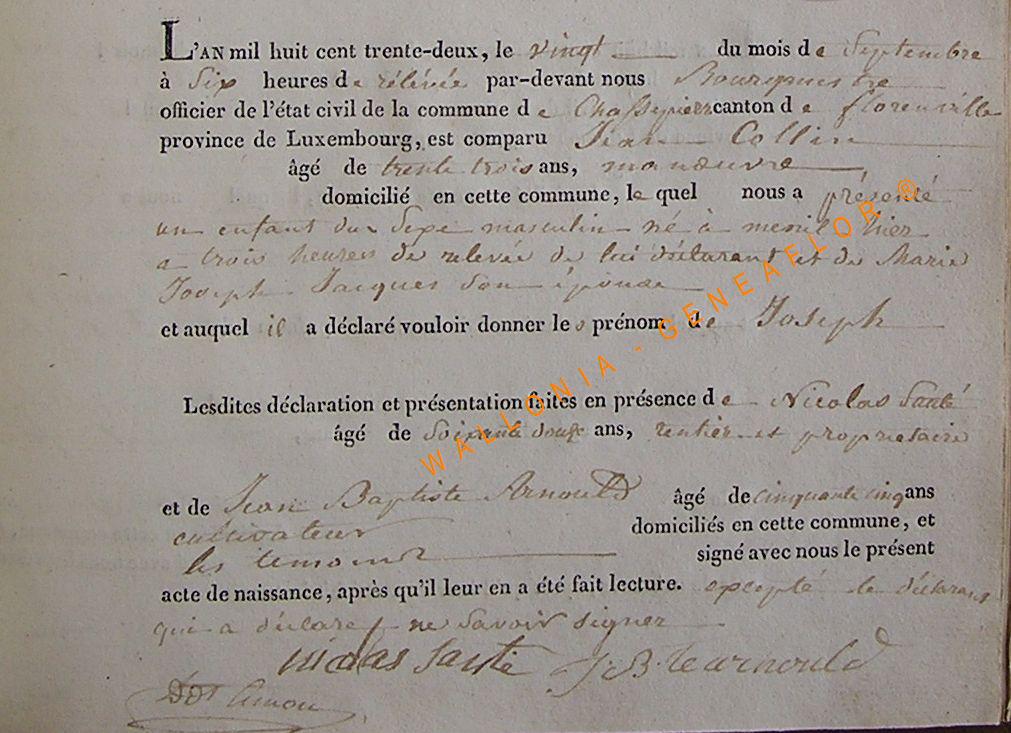 L'AN mil huit cent trente-deux, le vingt du mois de Septembre
à Six heures de rélévée par-devant nous Bourgmestre
officier de l'état civil de la commune de Chassepierre canton de florenville
province de Luxembourg, est comparu Jean Collin
âgé de trente trois ans, manœuvre
domicilié en cette commune, le quel nous a présenté
un enfant du Sexe masculin né à menil hier
a trois heures de relevée de lui déclarant et de Marie
Joseph Jacques Son épouse
et auquel il a déclaré vouloir donner les prénom de Joseph
Lesdites déclaration et présentation faites en présence de Nicolas Santé
âgé de Soixante douze ans, rentier et proprietaire
et de Jean Baptiste Arnould âgé de cinquante cinq ans
cultivateur domiciliés en cette commune, et
les temoins signé avec nous le présent
acte de naissance, après qu'il leur en a été fait lecture. excepté le déclarant
qui a déclaré ne Savoir Signer
nicolas Santé J B. Arnould
WALLONIA - GENEAFLOR ®